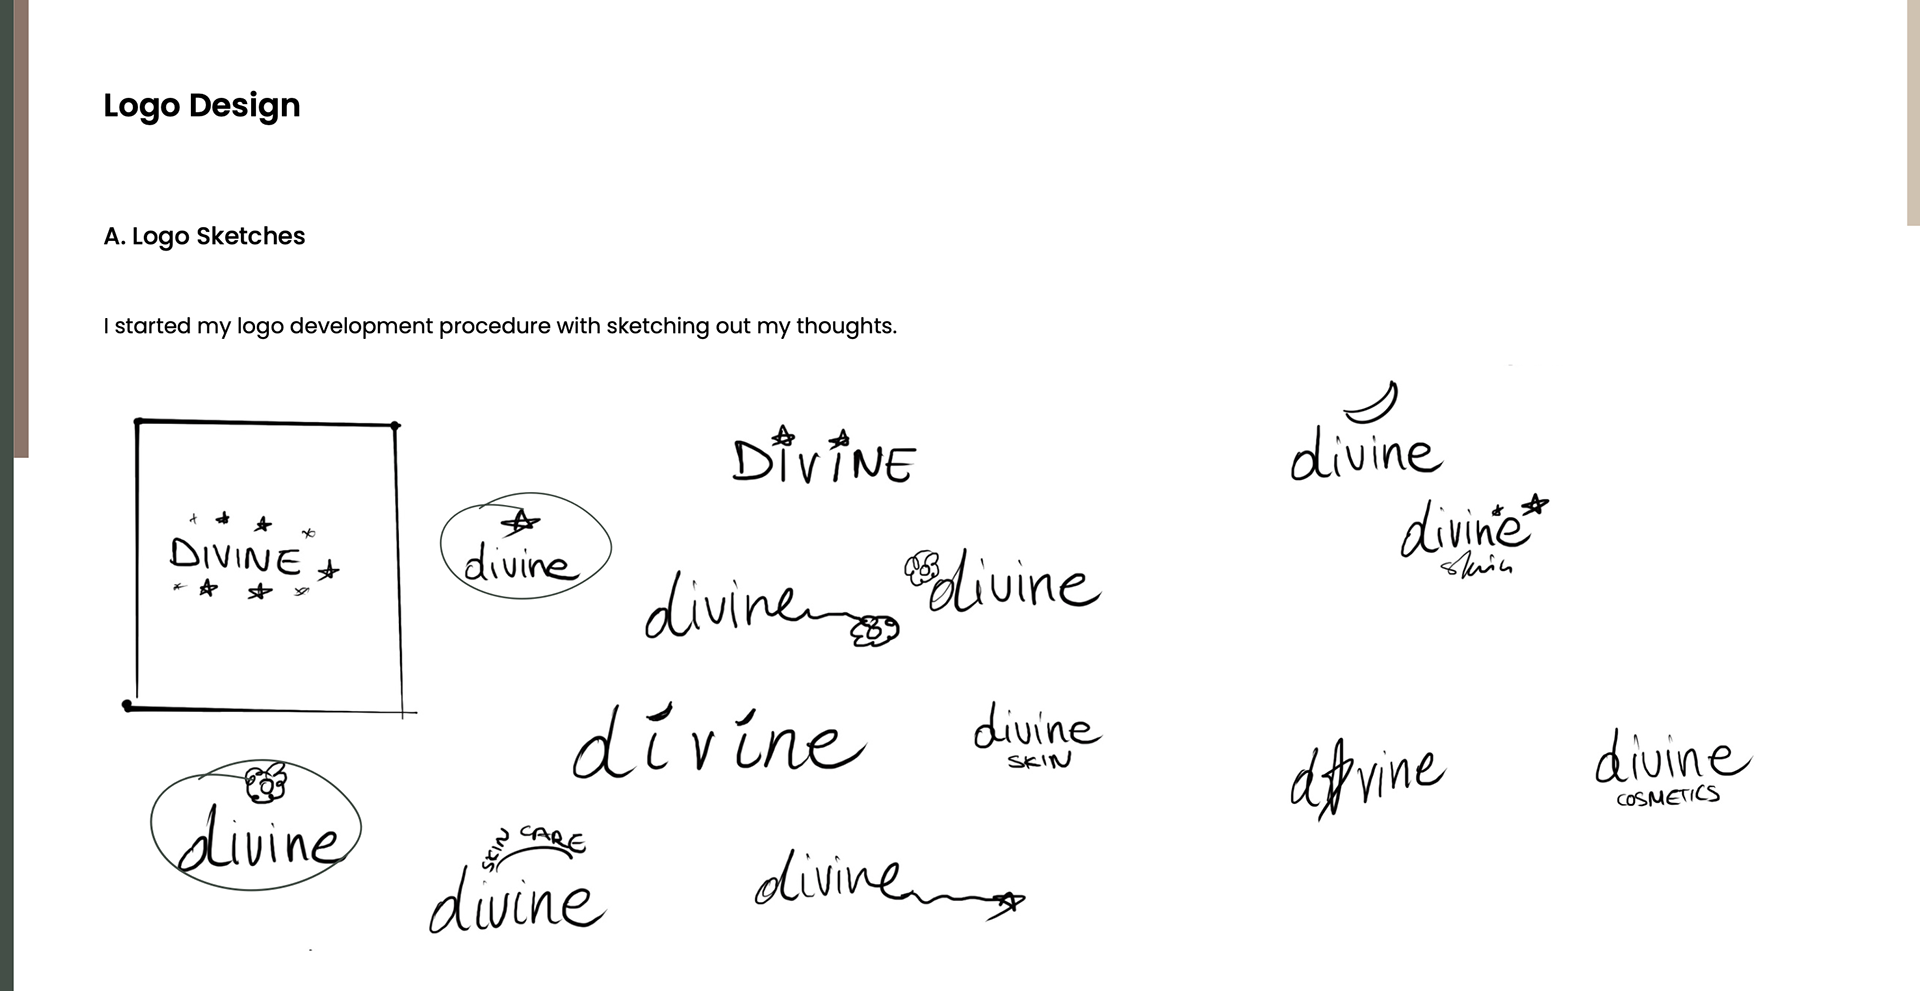 Logo Design
A. Logo Sketches
I started my logo development procedure with sketching out my thoughts.
DIVINE
divine
DiViNE
divine
divine
divine
divine
skin
divine
divine
SKIN
divine
divine
COSMETICS
divine
SKIN CARE
divine
divine